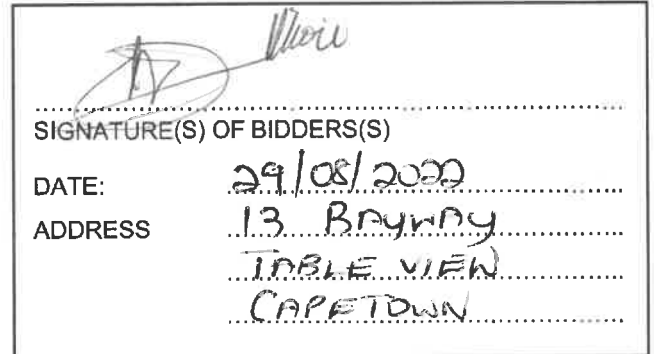 SIGNATURE(S) OF BIDDERS(S)
DATE: 29/08/2022
ADDRESS 13 BAYWAY
TABLE VIEW
CAPETOWN